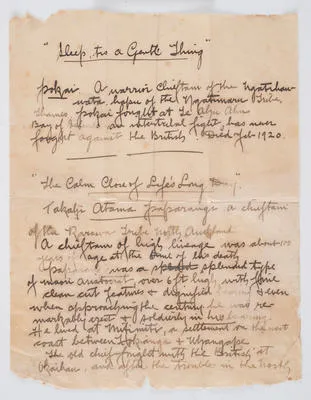 "Sleep, tis a Gentle Thing"
pokai. A warrior Chieftain of the Ngatihau-
wata, hapu of the Ngatimaru Tribe,
Thames, pokai fought at Te Ahu Ahu
Bay of an intertribal fight, has never
fought against the British. Died Feb 1920.
"The Calm Close of Life's Long Day."
Takapi Atama Paparangi a chieftain
of the Rarawa Tribe North Auckland
A chieftain of high lineage was about 100
years of age at the time of his death
Paparangi was a splendid type
of maori Aristocrat over 6ft high with fine
clean cut features & dignified & even
when approaching the century he was re-
markably erect & soldierly in his bearing.
He lived at Mitimiti, a settlement on the west
coast between Hokianga & Whangape.
The old chief fought with the British at
Okaihau, and after the trouble in the North